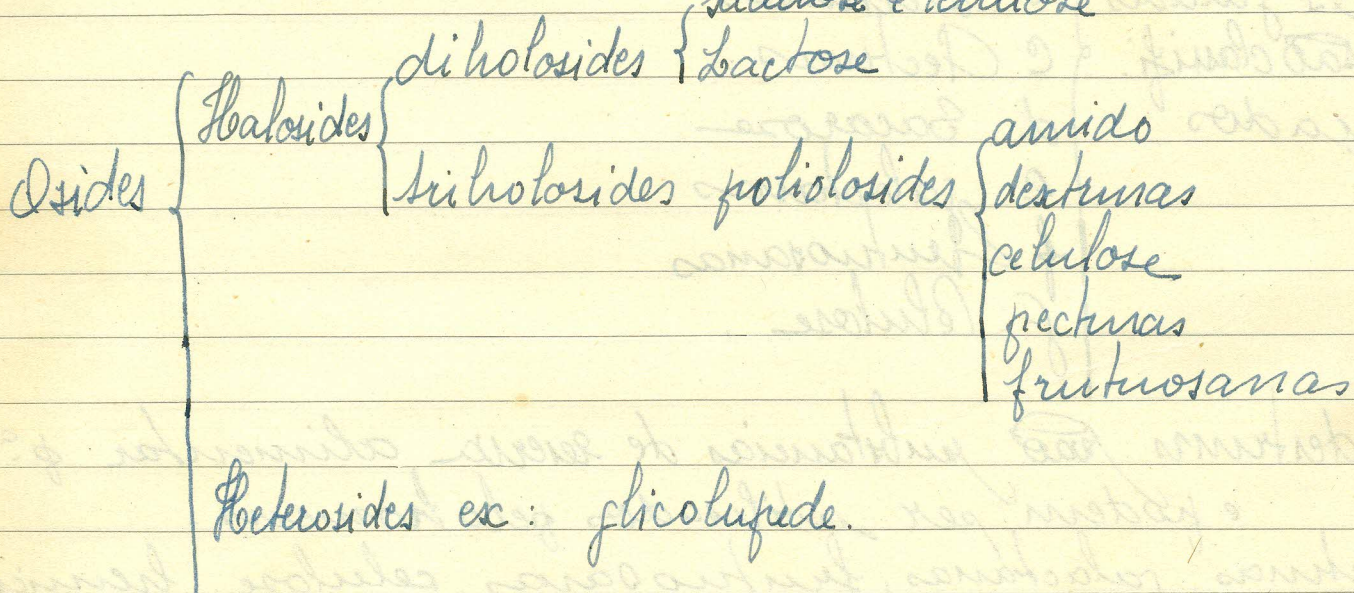 diholosides { Lactose
Halosides {
amido
Osides {
triholosides poliolosides { dextrinas
celulose
pectinas
frutuosanas
Heterosides ex: glicolipede.